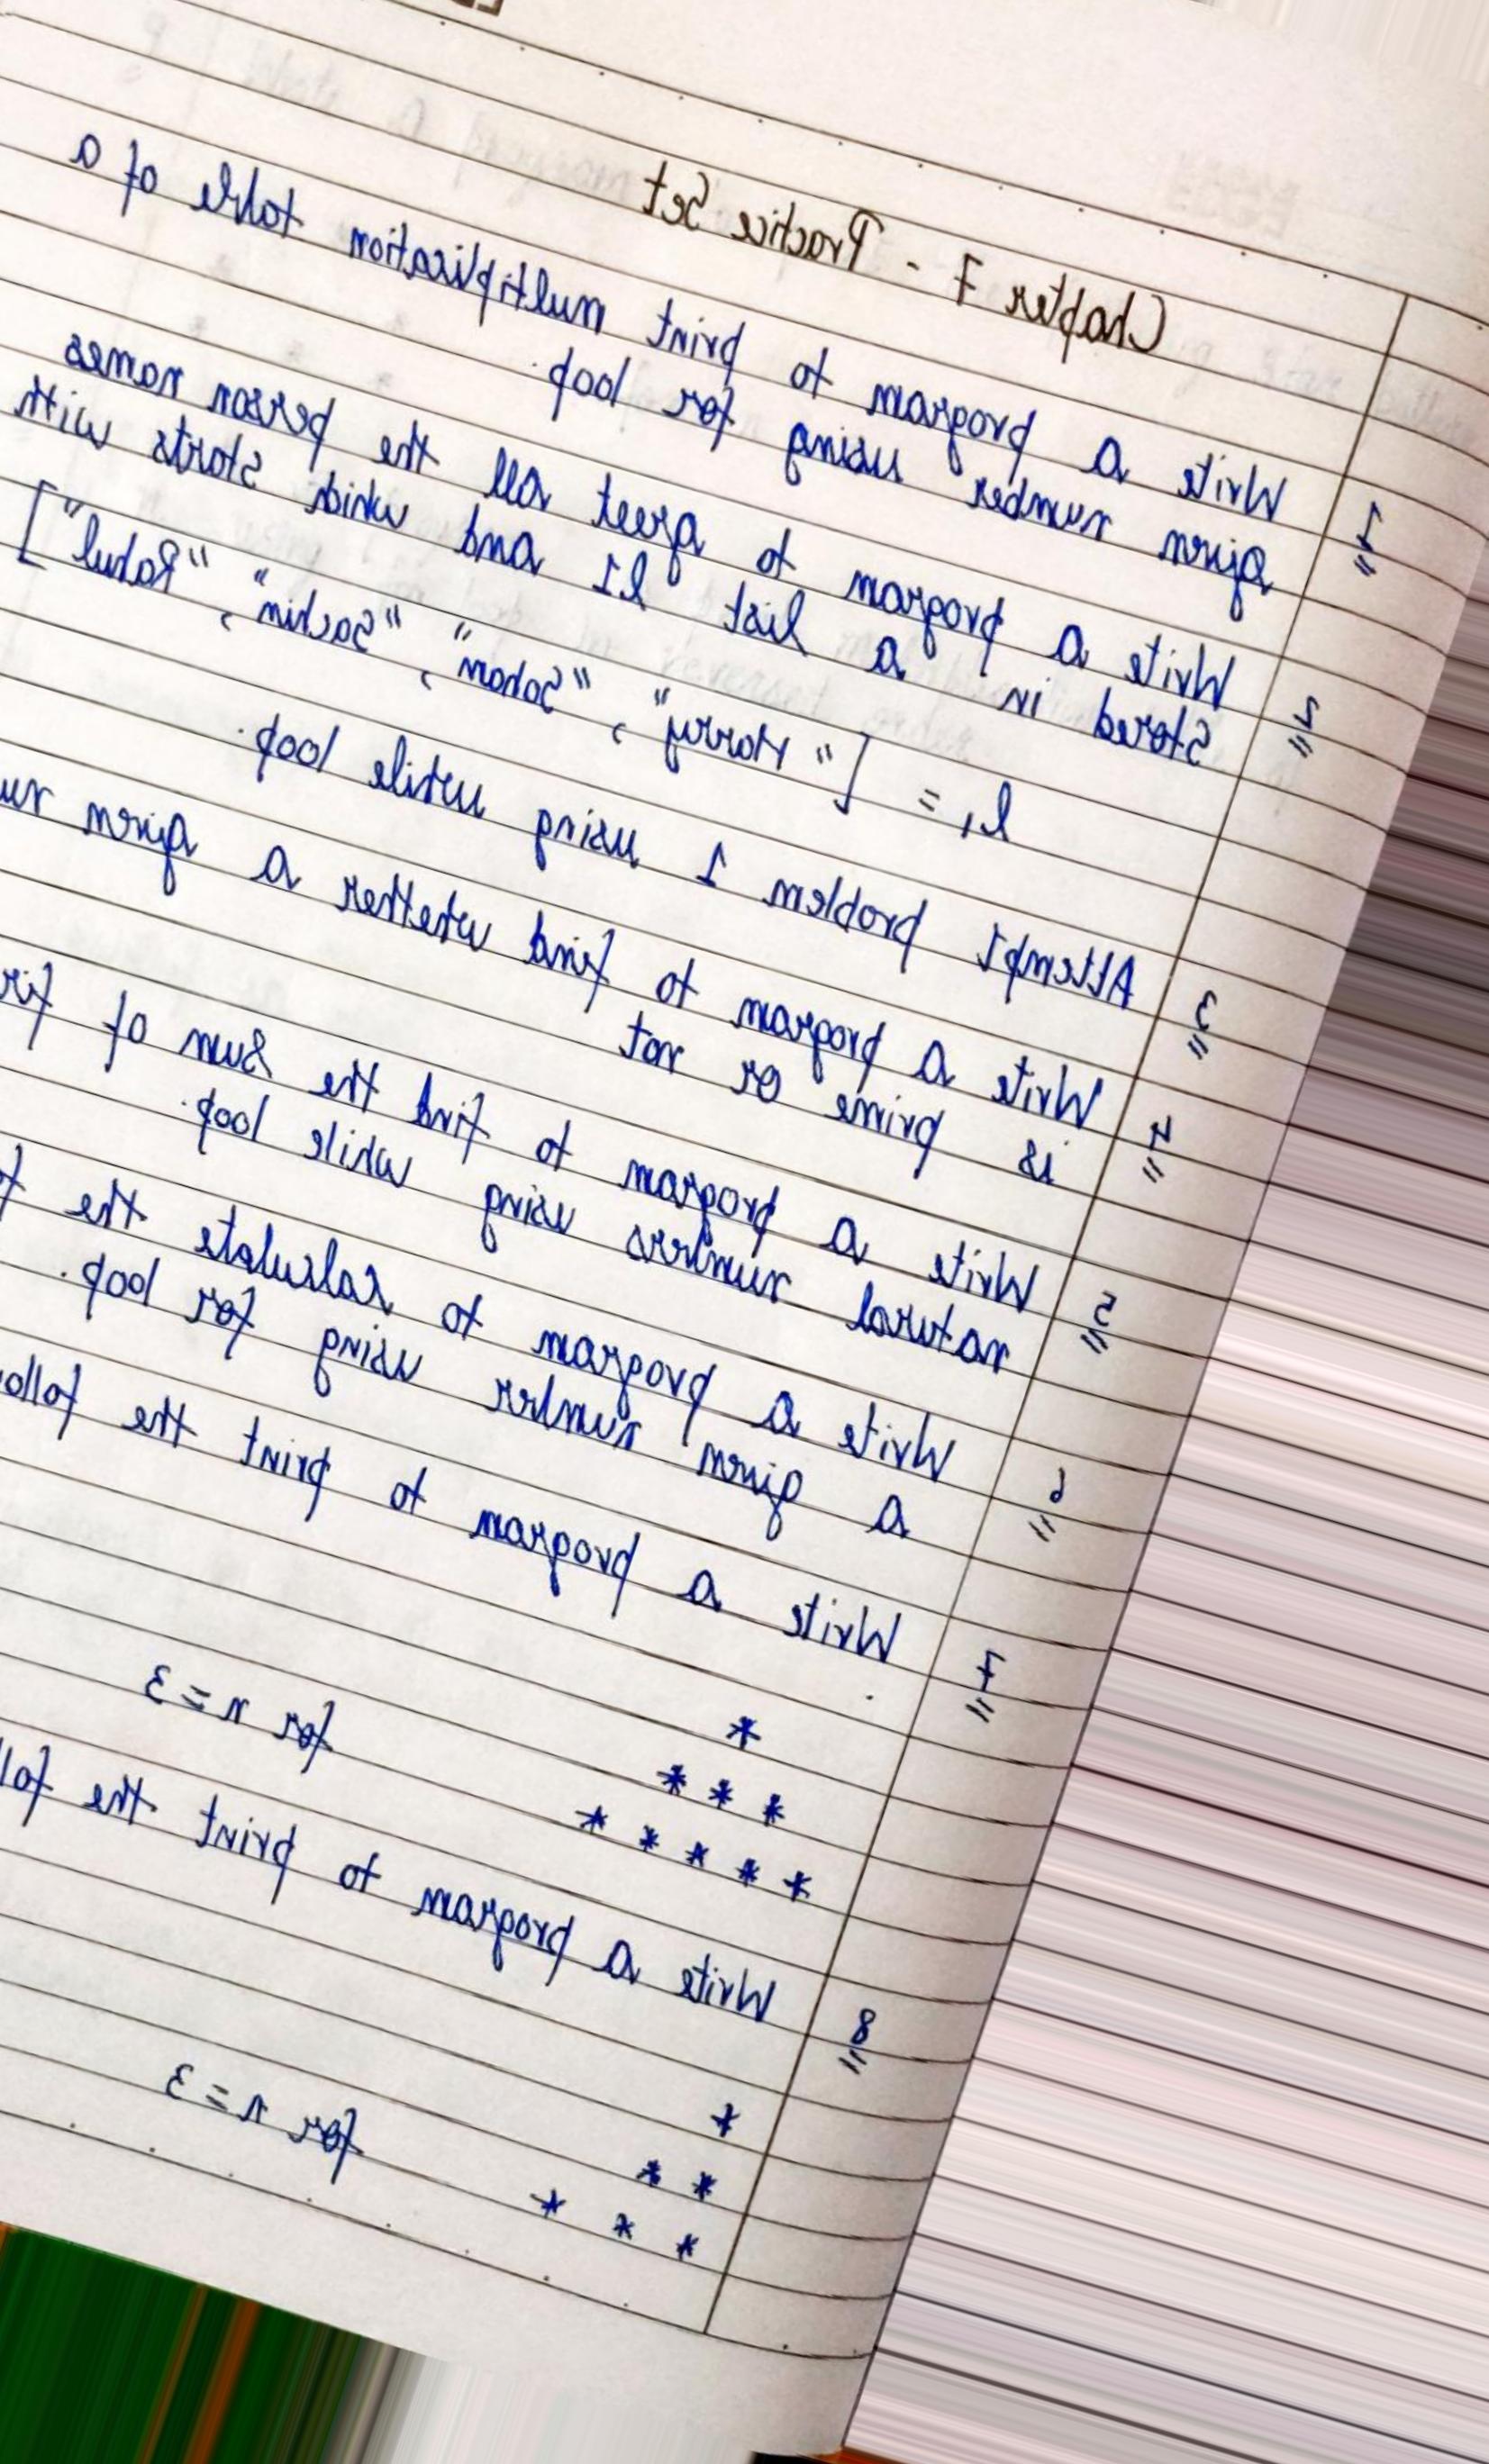 Chapter 7 - Practice Set
1 Write a program to print multiplication table of a
given number using for loop.
2 Write a program to greet all the person names
stored in a list l1 and which starts with
l1 = ["Harry", "Soham", "Sachin", "Rahul"]
3 Attempt problem 1 using while loop.
4 Write a program to find whether a given
is prime or not
5 Write a program to find the sum of
natural numbers using while loop.
6 Write a program to calculate the
a given number using for loop.
7 Write a program to print the
*
* * *
* * * * * for n = 3
8 Write a program to print the
*
* *
* * * for n = 3